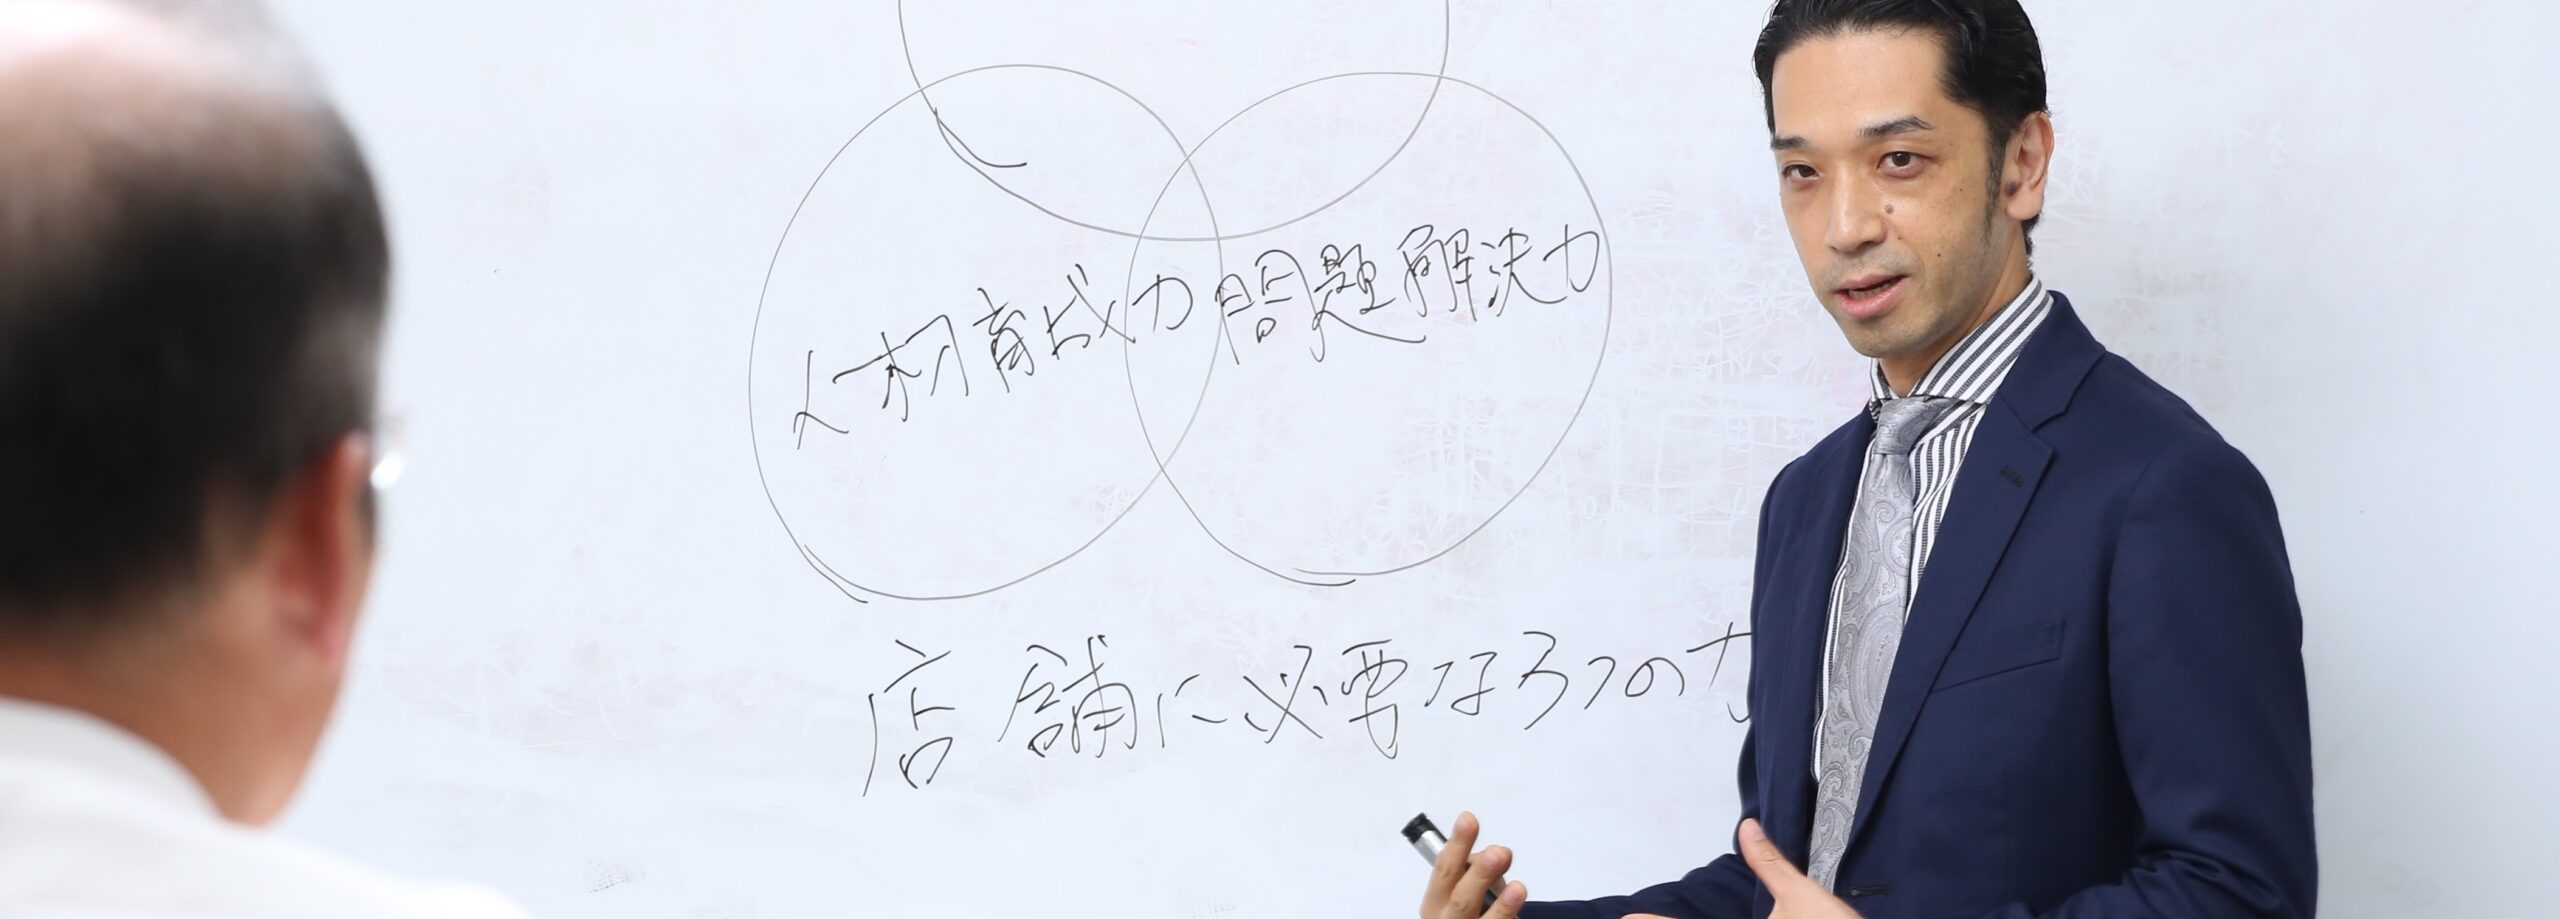 人材育成力
問題解決力
店舗に必要な3つの力